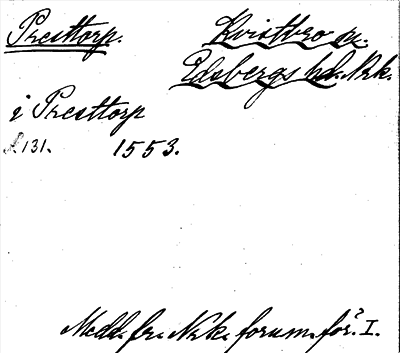 Presttorp.
Kvistbro sn.
Edsbergs hd. Nrk.
i Presttorp
131. 1553.
Medd. fr. Nrk. fornm. för. I.